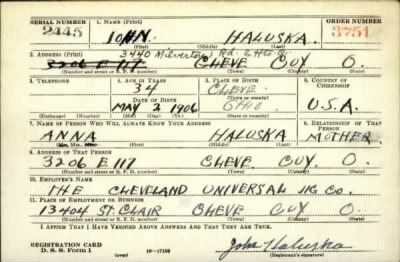 SERIAL NUMBER 1. NAME (Print) ORDER NUMBER
2445 JOHN HALUSKA 3751
(First) (Middle) (Last)
3440 Milverton Rd. S Hts O.
2. ADDRESS (Print)
3206 E 117 CLEVE CUY O.
(Number and street or R. F. D. number) (Town) (County) (State)
3. TELEPHONE 4. AGE IN YEARS 5. PLACE OF BIRTH 6. COUNTRY OF CITIZENSHIP
34 CLEVE.
DATE OF BIRTH (Town or county)
MAY 2 1906 OHIO U.S.A.
(Exchange) (Number) (Mo.) (Day) (Yr.) (State or country)
7. NAME OF PERSON WHO WILL ALWAYS KNOW YOUR ADDRESS 8. RELATIONSHIP OF THAT PERSON
ANNA HALUSKA MOTHER
(Mr., Mrs., Miss) (First) (Middle) (Last)
9. ADDRESS OF THAT PERSON
3206 E 117 CLEVE CUY. O.
(Number and street or R. F. D. number) (Town) (County) (State)
10. EMPLOYER'S NAME
THE CLEVELAND UNIVERSAL JIG CO.
11. PLACE OF EMPLOYMENT OR BUSINESS
13404 ST. CLAIR CLEVE CUY O
(Number and street or R. F. D. number) (Town) (County) (State)
I AFFIRM THAT I HAVE VERIFIED ABOVE ANSWERS AND THAT THEY ARE TRUE.
REGISTRATION CARD
D. S. S. Form 1 (over) 16—17105 John Haluska
(Registrant's signature)